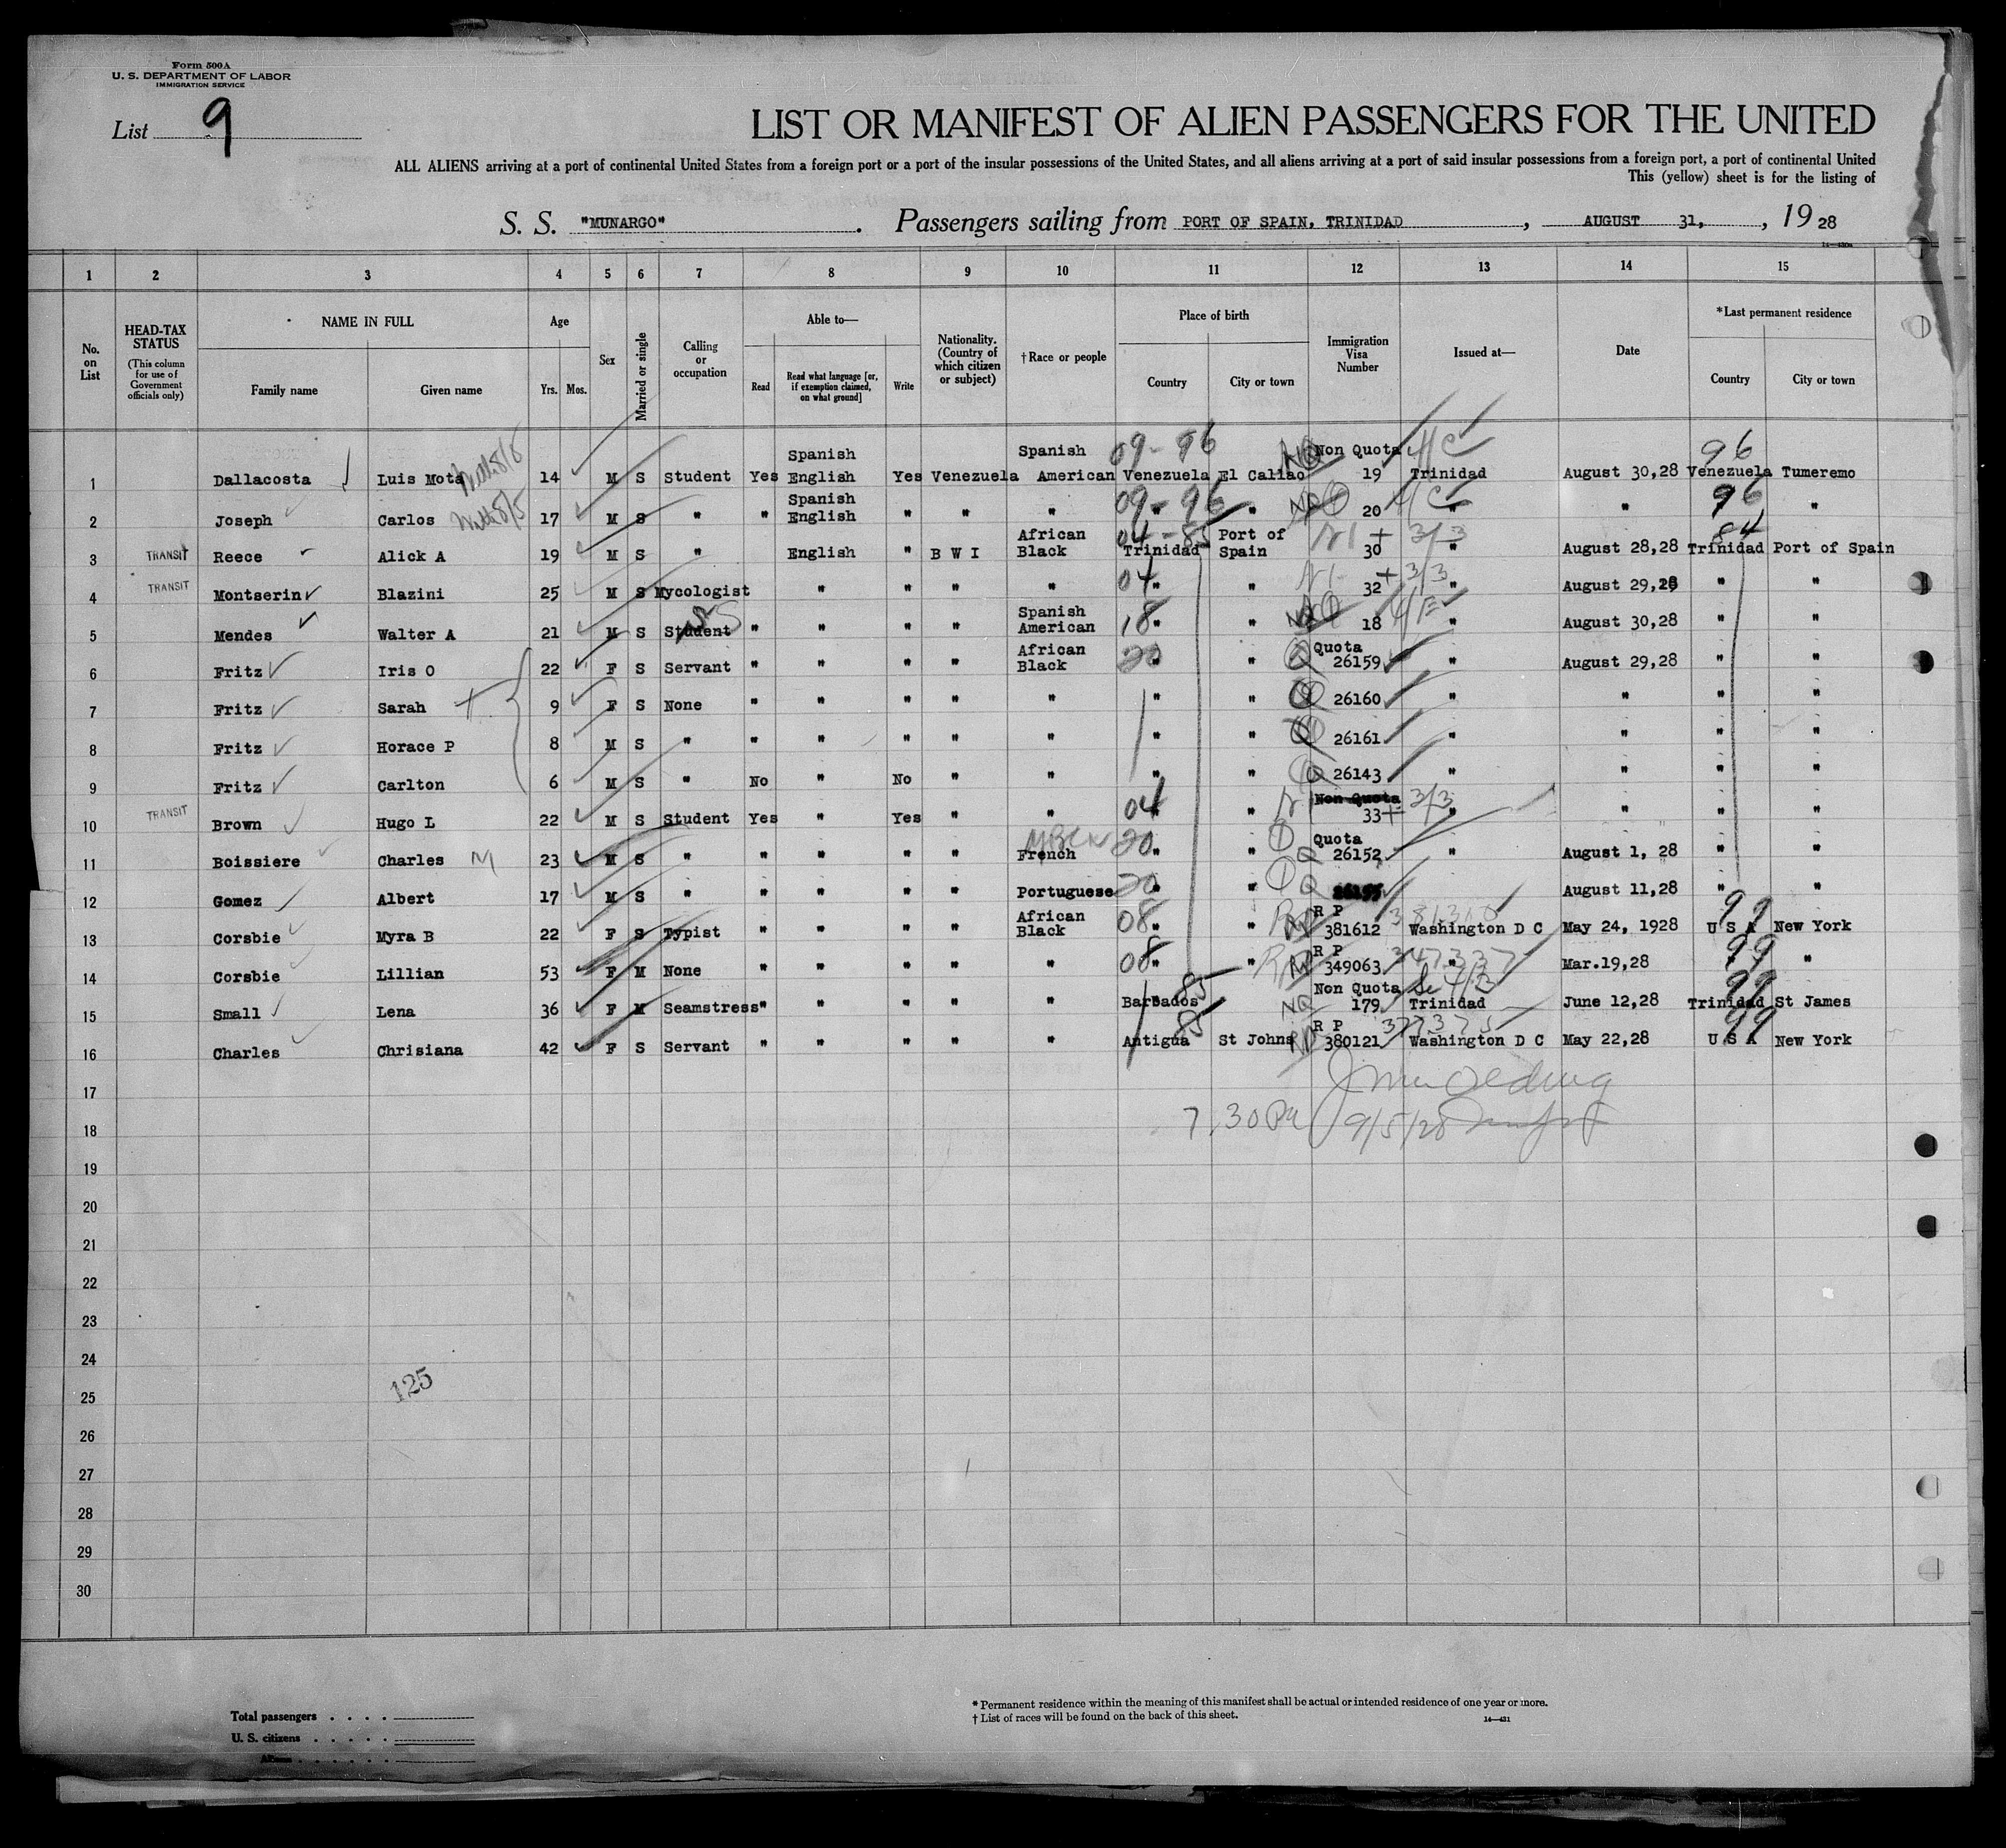 Form 500A
U. S. DEPARTMENT OF LABOR
IMMIGRATION SERVICE
List 9
LIST OR MANIFEST OF ALIEN PASSENGERS FOR THE UNITED
ALL ALIENS arriving at a port of continental United States from a foreign port or a port of the insular possessions of the United States, and all aliens arriving at a port of said insular possessions from a foreign port, a port of continental United
This (yellow) sheet is for the listing of
S. S. "MUNARGO". Passengers sailing from PORT OF SPAIN, TRINIDAD, AUGUST 31, , 19 28
1 2 3 4 5 6 7 8 9 10 11 12 13 14 15
No. on List
HEAD-TAX STATUS
(This column for use of Government officials only)
NAME IN FULL
Family name Given name
Age
Yrs. Mos.
Sex
Married or single
Calling or occupation
Able to—
Read Read what language [or, if exemption claimed, on what ground] Write
Nationality. (Country of which citizen or subject)
†Race or people
Place of birth
Country City or town
Immigration Visa Number
Issued at—
Date
*Last permanent residence
Country City or town
Spanish Spanish 09-96 NQ Non Quota 96
1 Dallacosta Luis Mota 14 M S Student Yes English Yes Venezuela American Venezuela El Callao 19 Trinidad August 30,28 Venezuela Tumeremo
Spanish 09-96 96
2 Joseph Carlos 17 M S " " English " " " " " 20 " " " "
African 04-85 Port of 84
3 TRANSIT Reece Alick A 19 M S " English " B W I Black Trinidad Spain 30 3/3 " August 28,28 Trinidad Port of Spain
4 TRANSIT Montserin Blazini 25 M S Mycologist " " " " 04 " " 32 3/3 August 29,28 " "
Spanish
5 Mendes Walter A 21 M S Student " " " " American 18 " " 18 August 30,28 " "
African Quota
6 Fritz Iris O 22 F S Servant " " " " Black 20 " " 26159 " August 29,28 " "
7 Fritz Sarah 9 F S None " " " " " " " 26160 " " " "
8 Fritz Horace P 8 M S " " " " " " " " 26161 " " " "
9 Fritz Carlton 6 M S " No " No " " " " 26143 " " " "
Non Quota
10 TRANSIT Brown Hugo L 22 M S Student Yes " Yes " " 04 " " 33 3/3 " " " "
Quota
11 Boissiere Charles M 23 M S " " " " " French 20 " " Q 26152 " August 1, 28 " "
12 Gomez Albert 17 M S " " " " " Portuguese 20 " " Q August 11,28 " "
African R P 99
13 Corsbie Myra B 22 F S Typist " " " " Black 08 " " 381612 Washington D C May 24, 1928 U S A New York
R P 99
14 Corsbie Lillian 53 F M None " " " " " 08 " " 349063 347337 " Mar.19,28 "
85 Non Quota 99
15 Small Lena 36 F M Seamstress " " " " " Barbados NQ 179 Trinidad June 12,28 Trinidad St James
85 R P 99
16 Charles Chrisiana 42 F S Servant " " " " " Antigua St Johns 380121 Washington D C May 22,28 U S A New York
17
7.30 PM 9/5/28
18
19
20
21
22
23
24
125
25
26
27
28
29
30
Total passengers
U. S. citizens
Aliens
* Permanent residence within the meaning of this manifest shall be actual or intended residence of one year or more.
† List of races will be found on the back of this sheet.
14—431